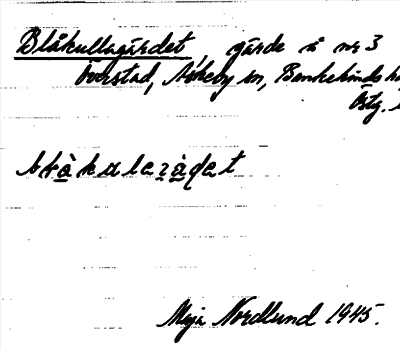 Blåkullagärdet, gärde å nr 3
Överstad, Askeby sn, Bankekinds h
Östg.
Maja Nordlund 1945.